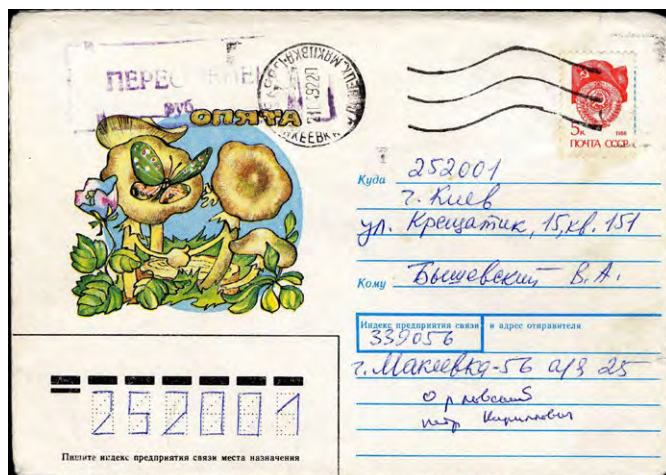 ПЕРЕ
руб
ОПЯТА
МАКЕЕВКА
5к 1988
ПОЧТА СССР
Куда 252001
г. Киев
ул. Крещатик, 15, кв. 151
Кому Бышевский В.А.
Индекс предприятия связи и адрес отправителя
339056
г. Макеевка-56 а/я 25
Орловский
петр Кириллович
252001
Пишите индекс предприятия связи места назначения